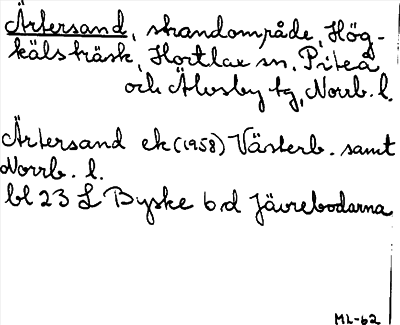 Ärtersand, strandområde, Hög-
kälsträsk, Hortlax sn, Piteå
och Älvsby tg, Norrb. l.
Ärtersand ek (1958) Västerb. samt
Norrb. l.
bl 23 L Byske b d Jävrebodarna
ML-62